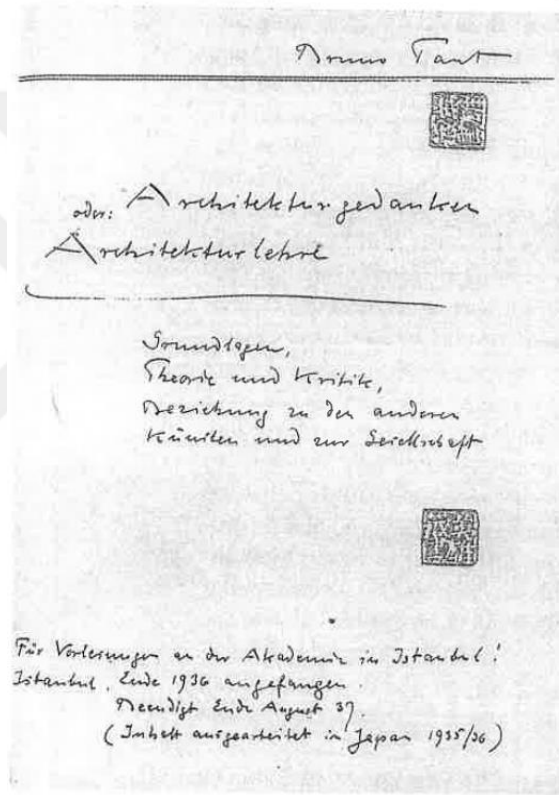 Bruno Taut
Architekturgedanken
oder:
Architekturlehre
Grundlagen,
Theorie und Kritik,
Beziehung zu den anderen
Künsten und zur Gesellschaft
Für Vorlesungen an der Akademie in Istanbul!
Istanbul, Ende 1936 angefangen.
Beendigt Ende August 37.
(Inhalt ausgearbeitet in Japan 1935/36)